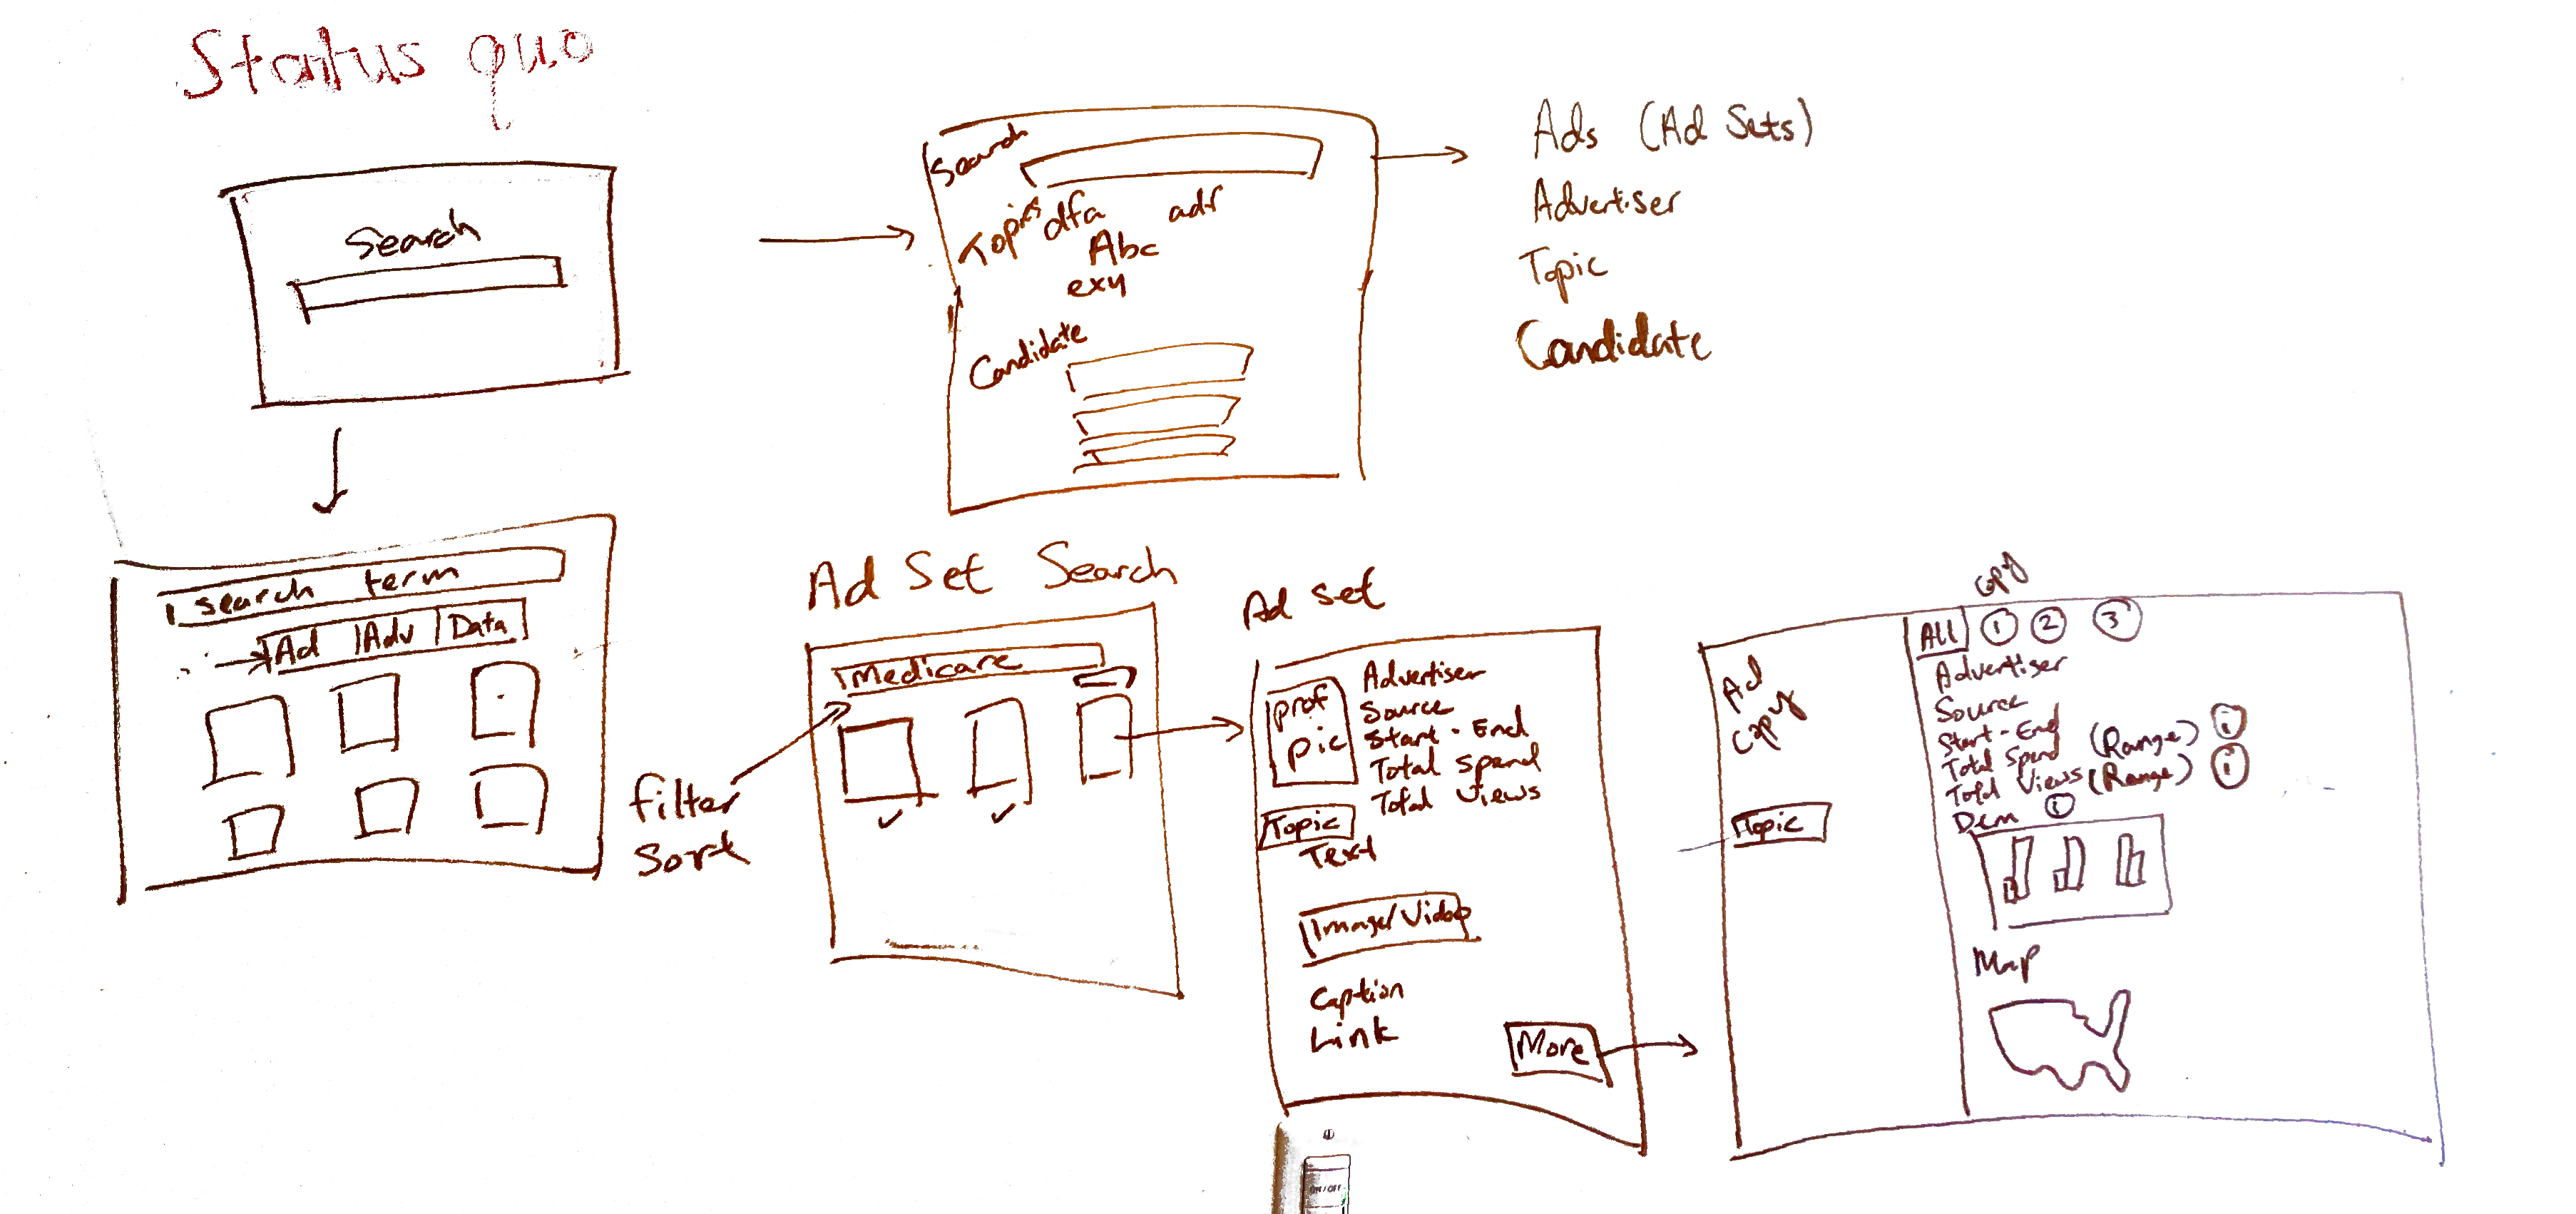 Status quo
Search
Search
Topics dfa adf
Abc
exy
Candidate
Ads (Ad Sets)
Advertiser
Topic
Candidate
search term
Ad Adv Data
filter
sort
Ad Set Search
Medicare
Ad Set
prof
pic
Advertiser
Source
Start - End
Total Spend
Total Views
Topic
Text
Image/Video
Caption
Link
More
Ad
Copy
Topic
Copy
All 1 2 3
Advertiser
Source
Start - End
Total Spend (Range) i
Total Views (Range) i
Dem i
Map
ON/OFF